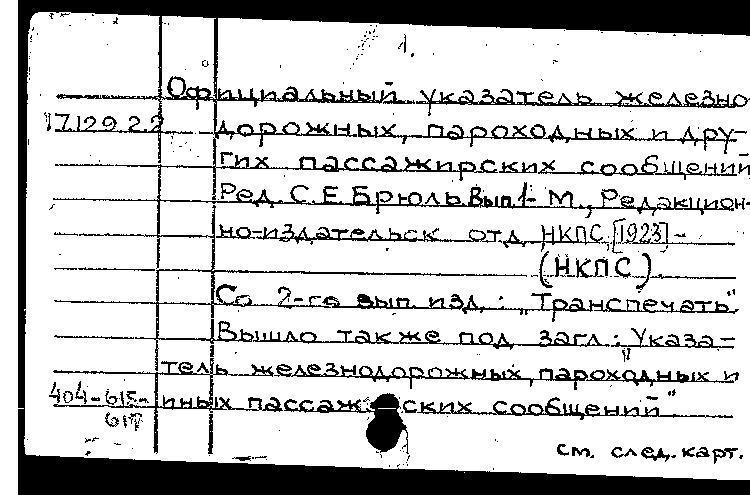 1.
Официальный указатель железно
17.129.2.2 дорожных, пароходных и дру-
гих пассажирских сообщений
Ред. С.Е.Брюль Вып.1- М., Редакцион-
но-издательск отд НКПС, [1923]-
(НКПС).
Со 2-го вып. изд.: "Транспечать".
Вышло также под загл.: "Указа-
тель железнодорожных, пароходных и
404-615- иных пассаж ских сообщений".
617
см. след. карт.